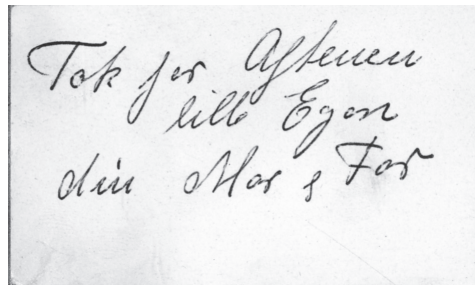 Tak for Aftenen
lille Egon
din Mor & Far